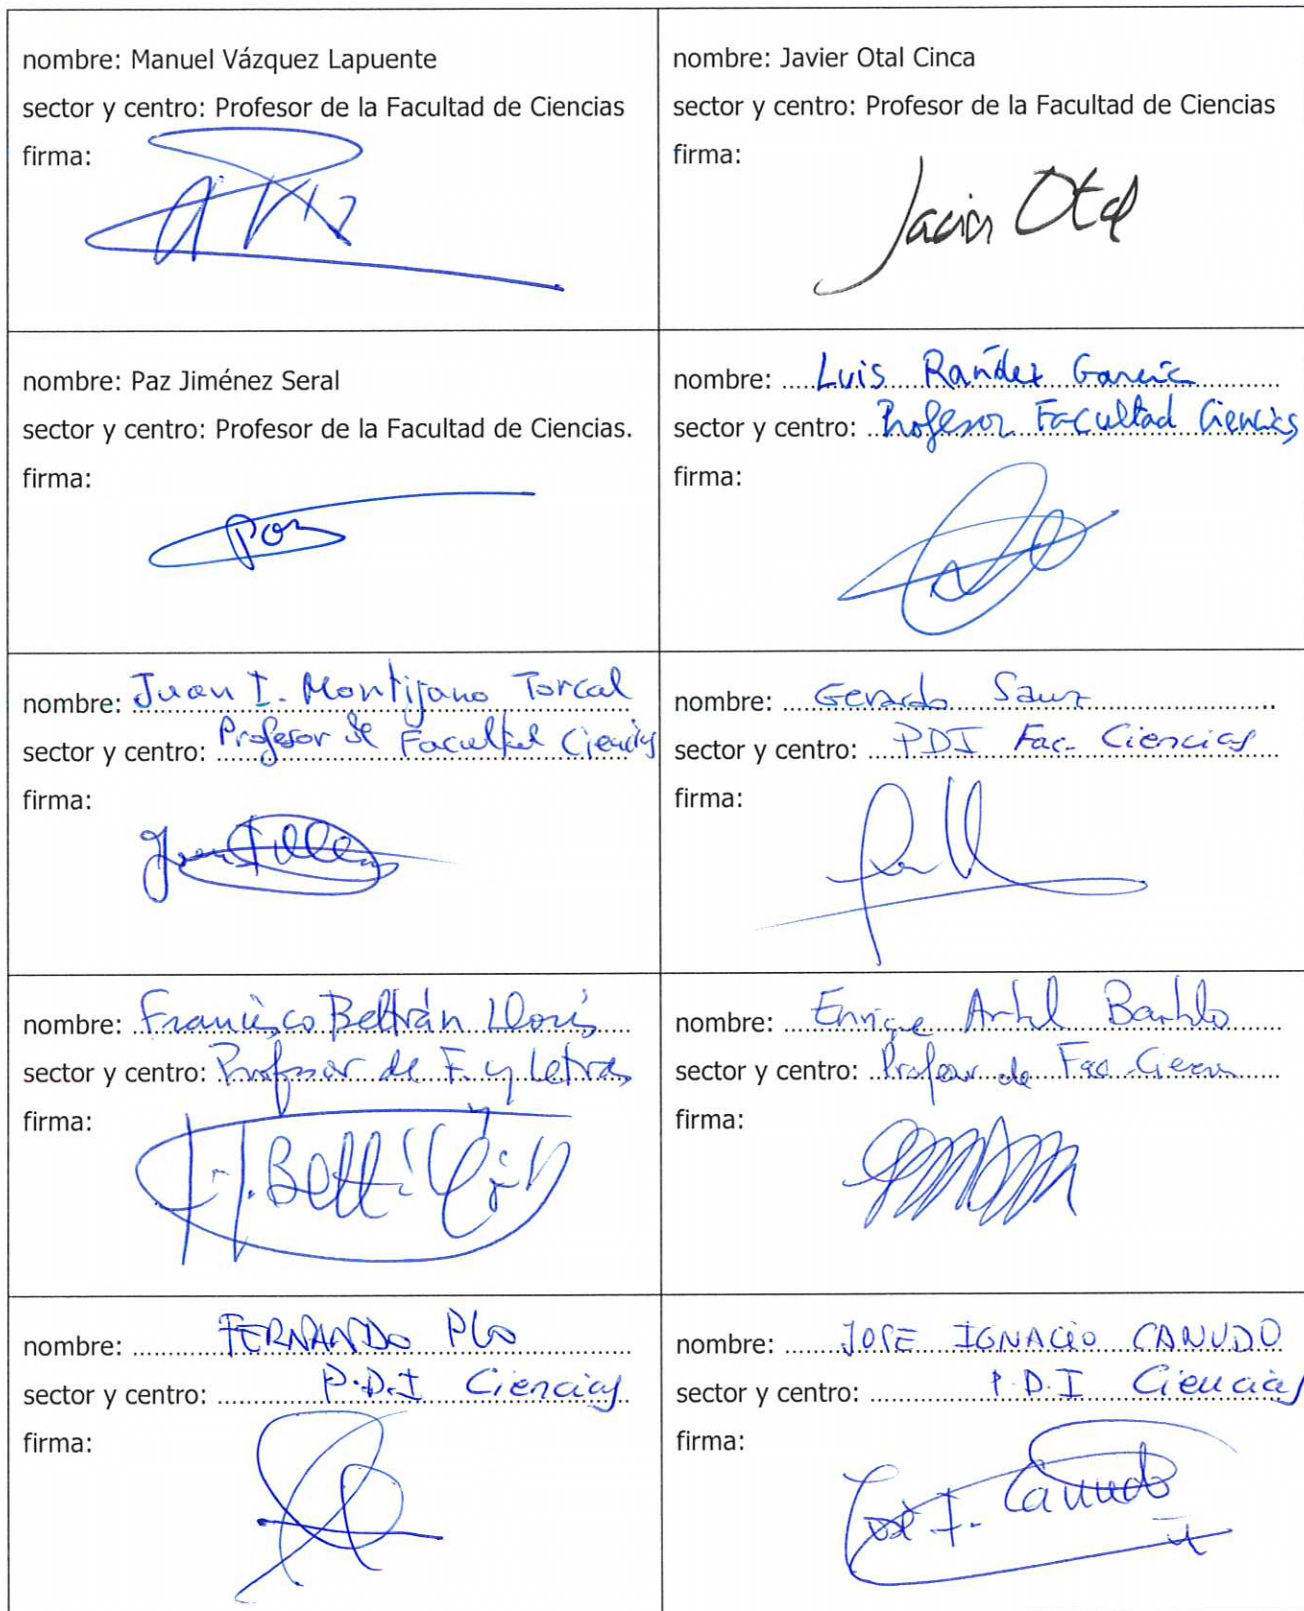 nombre: Manuel Vázquez Lapuente
sector y centro: Profesor de la Facultad de Ciencias
firma:
nombre: Javier Otal Cinca
sector y centro: Profesor de la Facultad de Ciencias
firma:
Javier Otal
nombre: Paz Jiménez Seral
sector y centro: Profesor de la Facultad de Ciencias.
firma:
Paz
nombre: Luis Rández García
sector y centro: Profesor Facultad Ciencias
firma:
nombre: Juan I. Montijano Torcal
sector y centro: Profesor de Facultad Ciencias
firma:
nombre: Gerardo Sanz
sector y centro: PDI Fac. Ciencias
firma:
nombre: Francisco Beltrán Lloris
sector y centro: Profesor de F. y Letras
firma:
nombre: Enrique Artal Bartolo
sector y centro: Profesor de Fac Ciencias
firma:
nombre: FERNANDO Plo
sector y centro: P.D.I Ciencias
firma:
nombre: JOSE IGNACIO CANUDO
sector y centro: P.D.I Ciencias
firma:
José I. Canudo